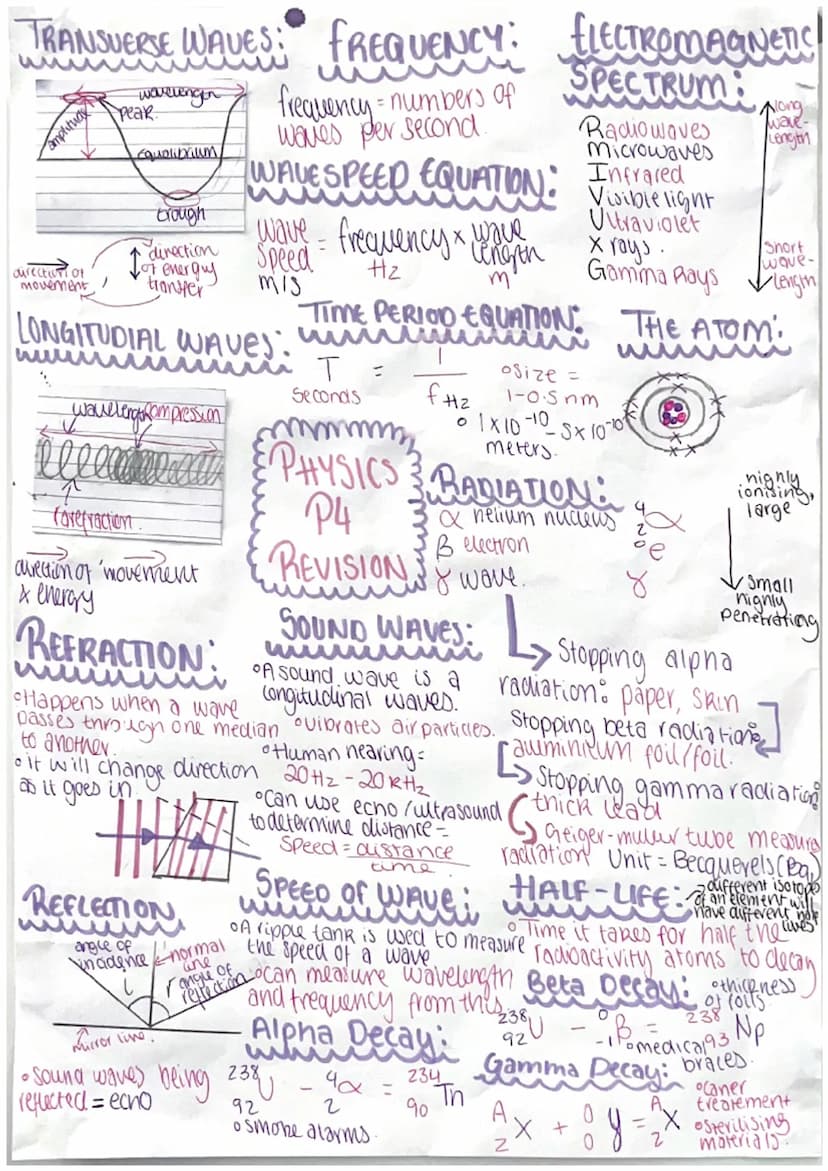 TRANSVERSE WAVES:
wavelength
amplitude
peak
equilibrium
trough
direction of
movement
direction
of energy
transfer
FREQUENCY:
frequency = numbers of
waves per second.
ELECTROMAGNETIC
SPECTRUM:
Radiowaves
Microwaves
Infrared
Visible light
Ultraviolet
X rays.
Gamma Rays
long
wave-
length
short
wave-
length
WAVESPEED EQUATION:
wave speed = frequency × wave length
m/s Hz m
TIME PERIOD EQUATION:
T = 1 / f Hz
seconds
THE ATOM:
size =
1-0.5 nm
1×10⁻¹⁰ - 5×10⁻¹⁰
meters.
LONGITUDIAL WAVES:
wavelength
compression
rarefraction.
direction of movement
× energy
PHYSICS
P4
REVISION
RADIATION:
α helium nucleus ⁴₂α
β electron ⁰e
γ wave. γ
highly
ionising,
large
small
highly
penetrating
Stopping alpha
radiation: paper, skin
Stopping beta radiation:
aluminium foil/foil.
Stopping gamma radiation:
thick lead
Geiger-muller tube measures
radiation Unit = Becquerels (Bq)
REFRACTION:
Happens when a wave
passes through one median
to another.
it will change direction
as it goes in.
SOUND WAVES:
A sound wave is a
longitudinal waves.
vibrates air particles.
Human hearing =
20Hz - 20kHz
Can use echo/ultrasound
to determine distance =
Speed = distance / time
REFLECTION
angle of
incidence
i
normal
line
r
angle of
reflection
mirror line.
sound waves being
reflected = echo
SPEED OF WAVE:
A ripple tank is used to measure
the speed of a wave
can measure wavelength
and frequency from this
HALF-LIFE:
different isotopes
of an element will
have different half
lives
Time it takes for half the
radioactivity atoms to decay
Alpha Decay:
²³⁸₉₂U - ⁴₂α = ²³⁴₉₀Th
smoke alarms.
Beta Decay:
thickness
of foils
²³⁸₉₂U - ⁰₋₁β = ²³⁸₉₃Np
medical
braces.
Gamma Decay:
ᴬzX + ⁰₀γ = ᴬzX
caner
treatement
sterilising
materials.